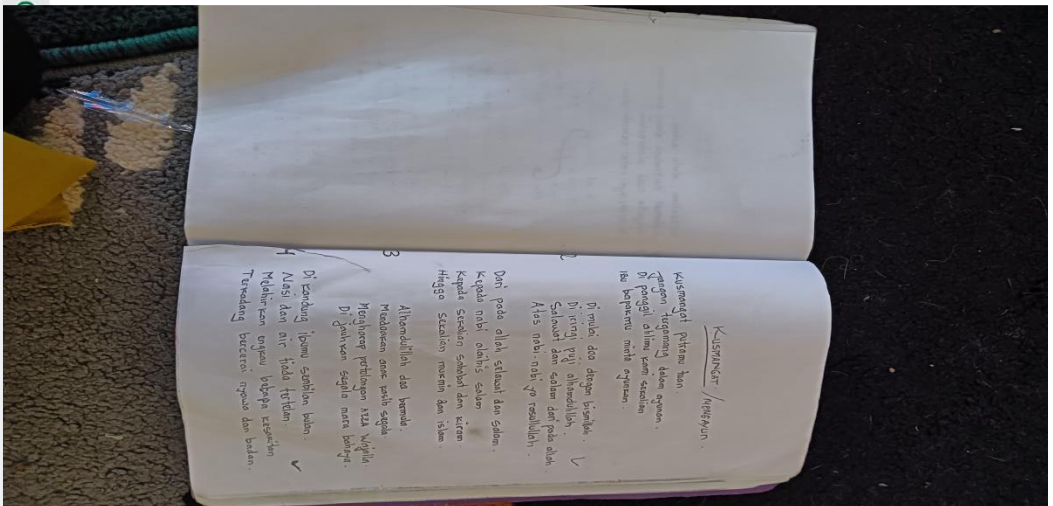 KUSMANGAT / NENGAYUN.
Kusmangat putramu tuan.
Jangan tergamang dalam ayunan.
Di panggil ahlimu kam sekalian
Ibu bapakmu minta ayunkan.
2
Di mulai doa dengan bismillah.
Di iringi puji alhamdulillah.
Salawat dan salam dari pada allah.
Atas nabi.nabi ya rosullullah.
Dari pada allah selawat dan salam.
Kepada nabi alaihis salam
Kepada sekalian sahabat dan kiram
Hingga sekalian mukmin dan islam.
3
Alhamdulillah doa bermula.
Mendoakan anak kasih segala
Mengharap pertolongan azza wajjalla
Di jauhkan segala mara bahaya.
4
Di kandung ibumu sembilan bulan.
Nasi dan air tiada tertelan.
Melahirkan engkau beberapa kesakitan
Terkadang bercerai nyawa dan badan.